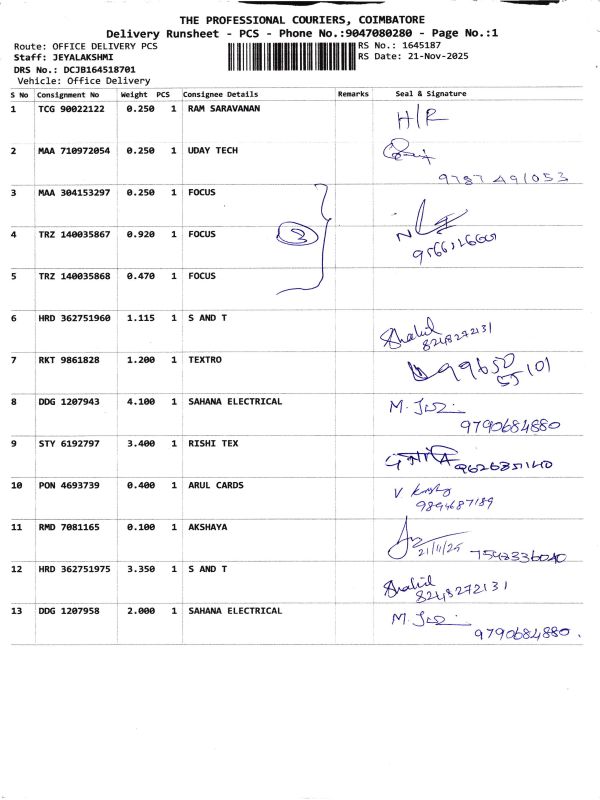 THE PROFESSIONAL COURIERS, COIMBATORE
Delivery Runsheet - PCS - Phone No.:9047080280 - Page No.:1
Route: OFFICE DELIVERY PCS RS No.: 1645187
Staff: JEYALAKSHMI RS Date: 21-Nov-2025
DRS No.: DCJB164518701
Vehicle: Office Delivery
S No Consignment No Weight PCS Consignee Details Remarks Seal & Signature
1 TCG 90022122 0.250 1 RAM SARAVANAN H/R
2 MAA 710972054 0.250 1 UDAY TECH
9787 491053
3 MAA 304153297 0.250 1 FOCUS
4 TRZ 140035867 0.920 1 FOCUS 3
5 TRZ 140035868 0.470 1 FOCUS
6 HRD 362751960 1.115 1 S AND T Shakil
8248272131
7 RKT 9861828 1.200 1 TEXTRO 99650
55101
8 DDG 1207943 4.100 1 SAHANA ELECTRICAL M.
9790684880
9 STY 6192797 3.400 1 RISHI TEX 9626851140
10 PON 4693739 0.400 1 ARUL CARDS V
9894687189
11 RMD 7081165 0.100 1 AKSHAYA
21/11/25 7548336040
12 HRD 362751975 3.350 1 S AND T Shakil
8248272131
13 DDG 1207958 2.000 1 SAHANA ELECTRICAL M.
9790684880.